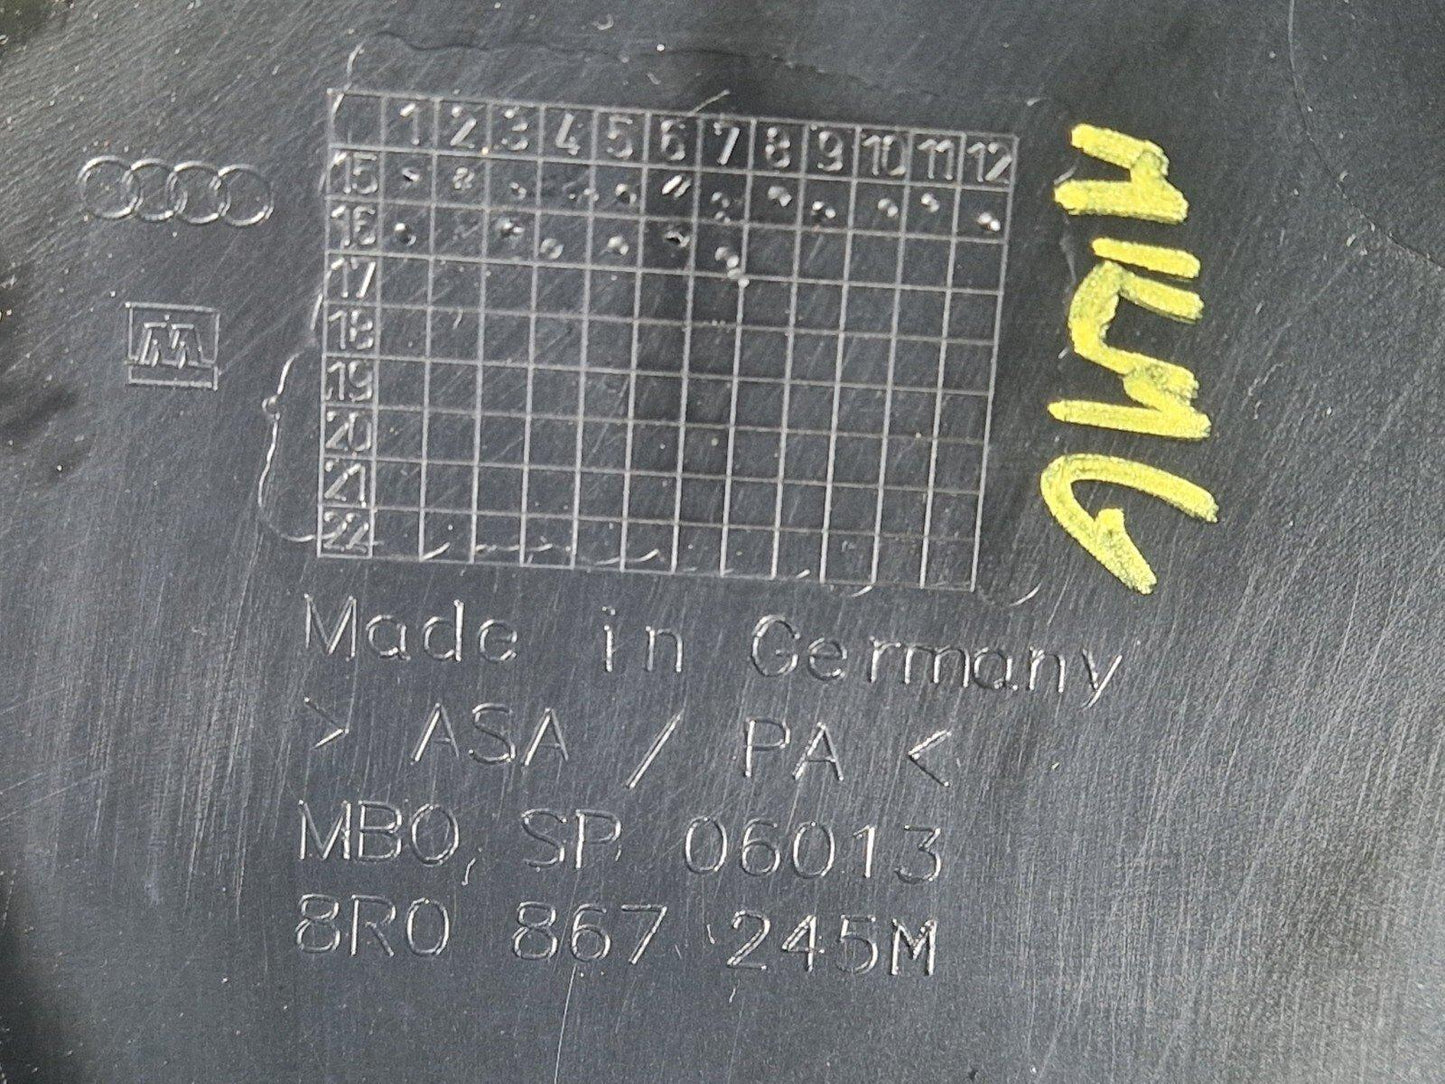 1 2 3 4 5 6 7 8 9 10 11 12
15
16
17
18
19
20
21
22
Made in Germany
> ASA / PA <
MBO, SP. 06013
8R0 867 245M